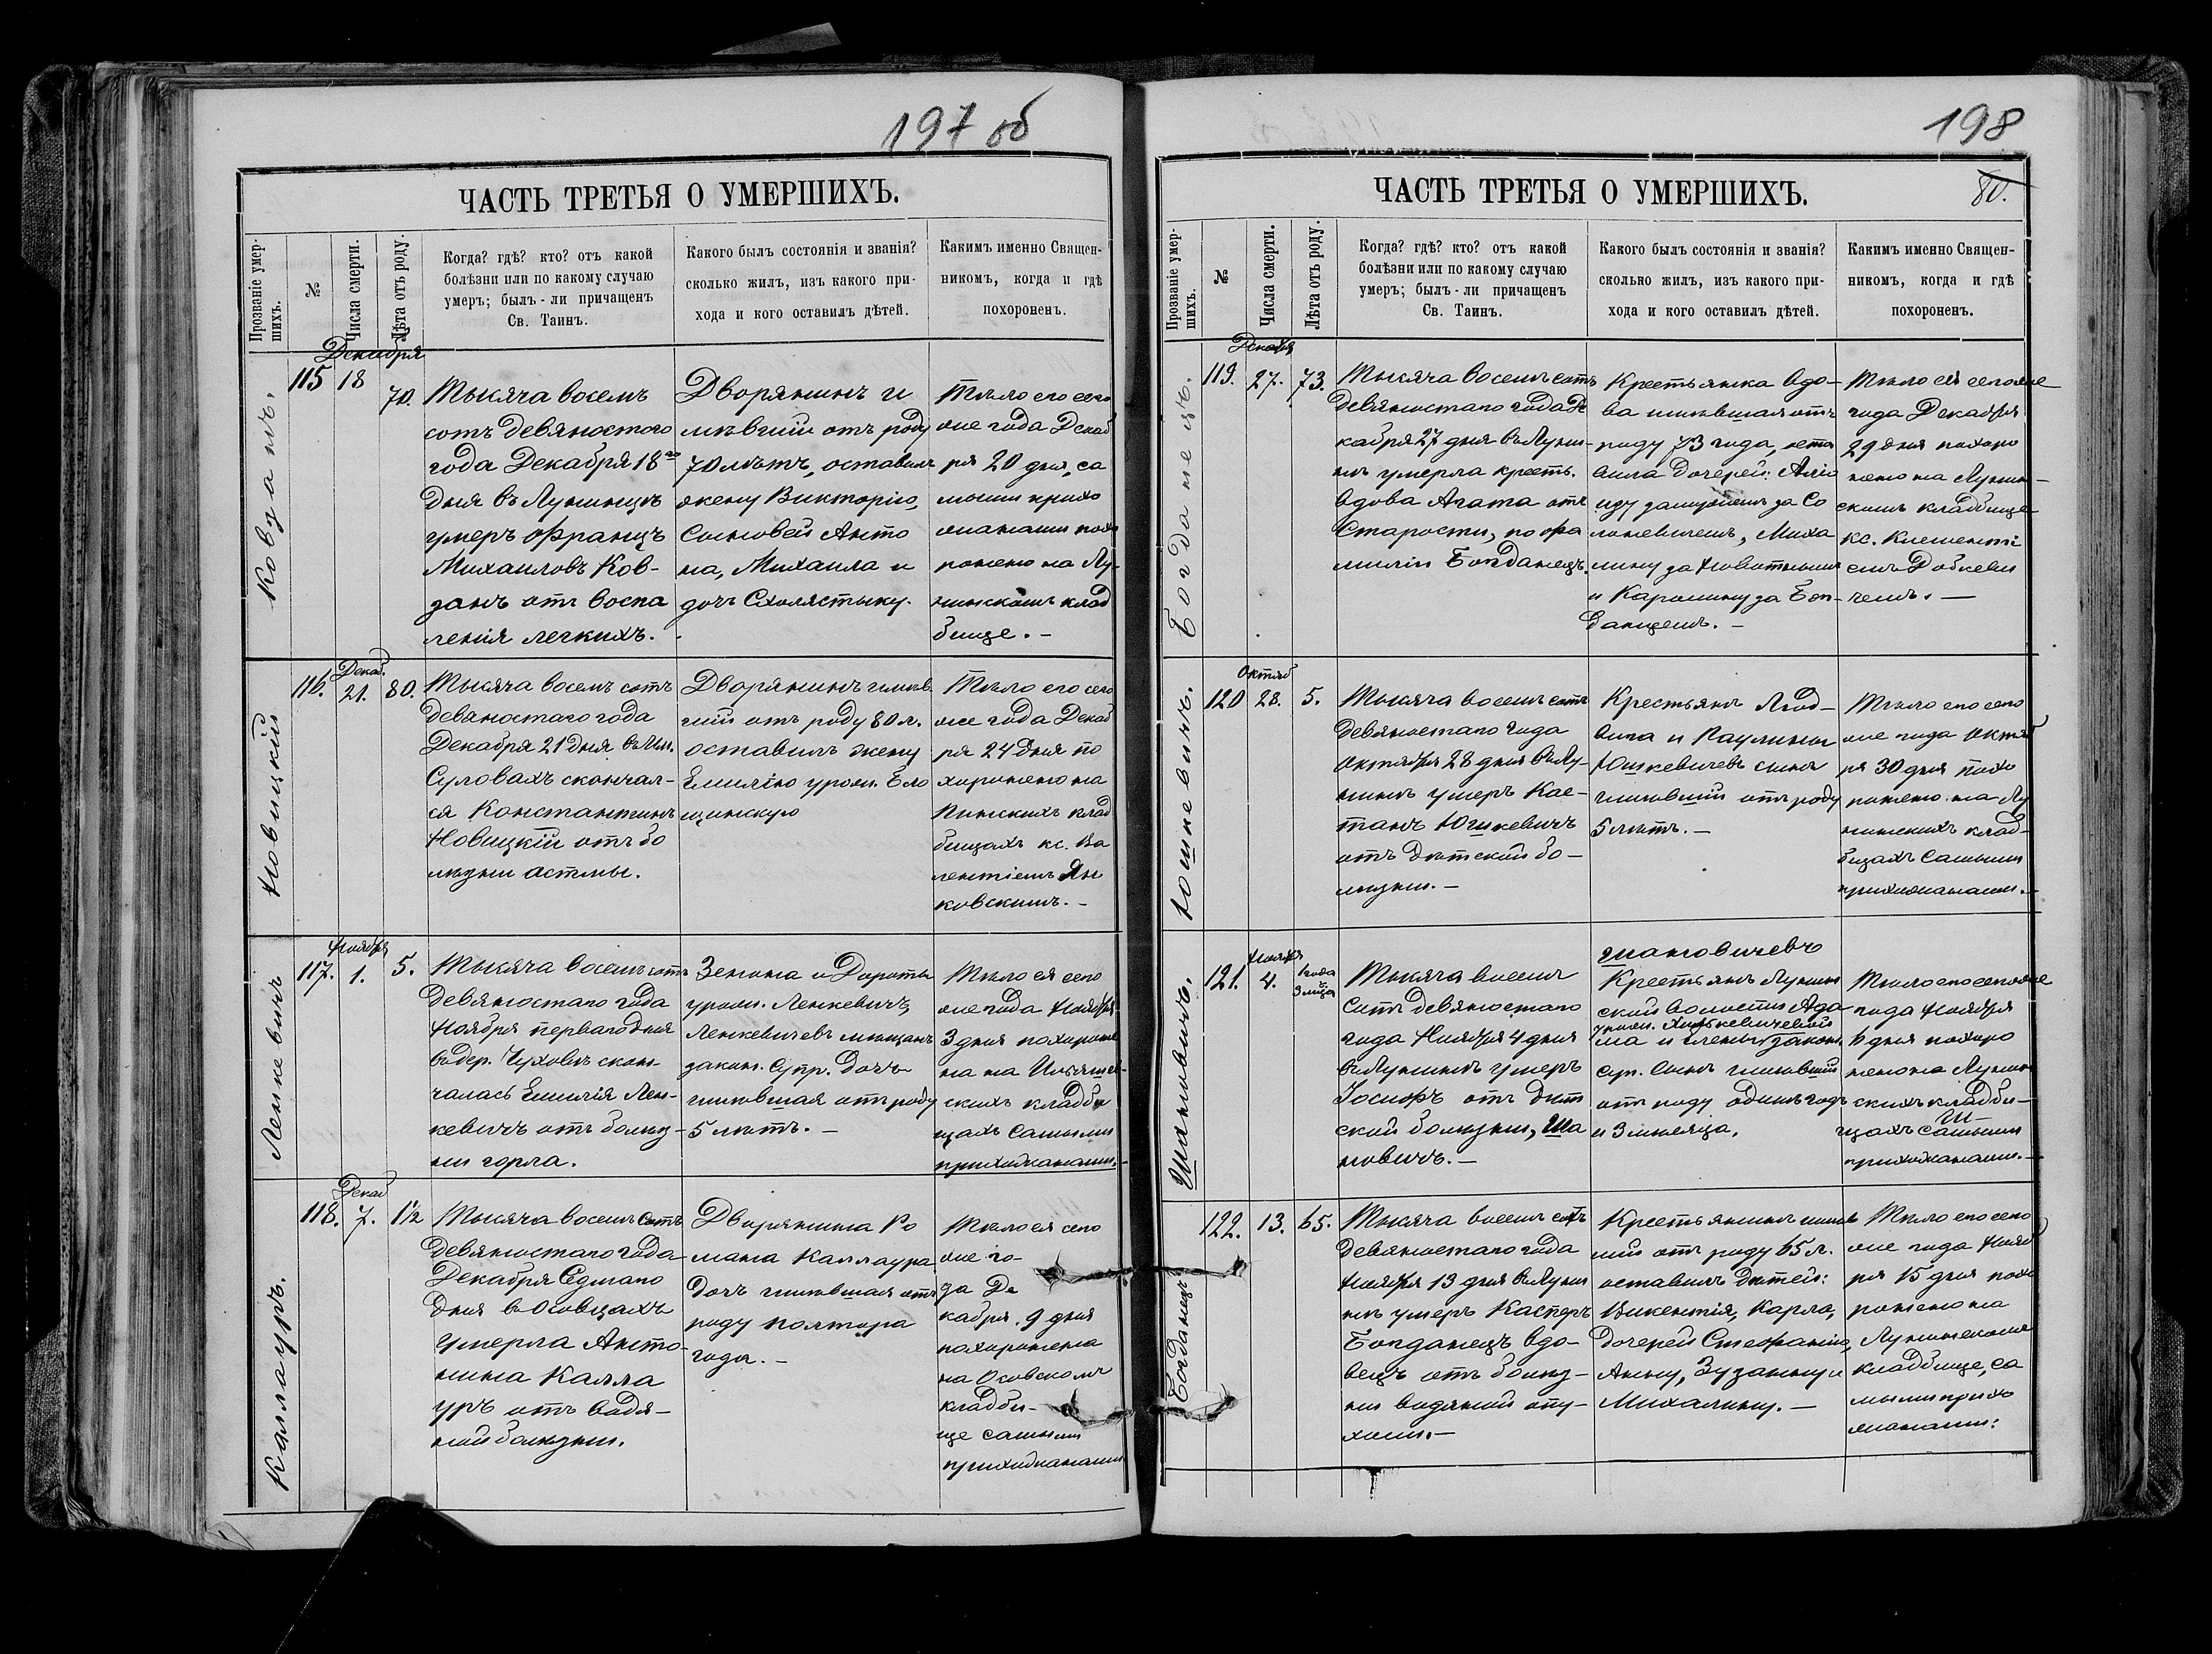 197 об
ЧАСТЬ ТРЕТЬЯ О УМЕРШИХЪ.
Прозваніе умер-
шихъ.
№
Числа смерти.
Лѣта отъ роду.
Когда? гдѣ? кто? отъ какой
болѣзни или по какому случаю
умеръ; былъ-ли причащенъ
Св. Таинъ.
Какого былъ состоянія и званія?
сколько жилъ, изъ какого при-
хода и кого оставилъ дѣтей.
Какимъ именно Священ-
никомъ, когда и гдѣ
похороненъ.
Ковзанъ.
Декабря
115 18
70.
Тысяча восемъ
сотъ девяностого
года Декабря 18го
дня въ Лунинцѣ
умеръ Францъ
Михаиловъ Ков-
занъ отъ воспа
ленія легкихъ.
Дворянинъ и
мѣвшій отъ роду
70 лѣтъ, оставилъ
жену Викторію,
Сыновей Анто
на, Михаила и
дочь Схолястыку.
Тѣло его сего
же года Декаб
ря 20 дня, са
мыми прихо
жанами похо
ронено на Лу-
нинскомъ клад
бище. -
Новицкій
116.
Декаб.
21.
80.
Тысяча восемъ сотъ
девяностаго года
Декабря 21 дня въ Им.
Суловахъ скончал-
ся Константинъ
Новицкій отъ бо
лѣзни астмы.
Дворянинъ имѣв
шій отъ роду 80 л.
оставилъ жену
Емилію урож.
Тѣло его сего
же года Декаб
ря 24 дня по
хоронено на
Пинскихъ клад
бищахъ кс. Ва
лентіемъ Ян
ковскимъ. -
Ленкевичъ
Ноября
117. 1.
5.
Тысяча восемъ сотъ
девяностаго года
Ноября перваго дня
въ дер. Чухово скон
чалась Емилія Лен-
кевичъ отъ болѣз-
ни горла.
Зенона и Дороты
урож. Ленкевичъ,
Ленкевичевъ мѣщанъ
закон. Супр. дочь
имѣвшая отъ роду
5 лѣтъ. -
Тѣло ея сего
же года Ноября
3 дня похороне
на на
скихъ кладби
щахъ самыми
прихожанами. -
Каллауръ.
Декаб
118. 7.
1½
Тысяча восемъ сотъ
девяностаго года
Декабря Седмаго
дня въ Осовцахъ
умерла Анто-
нина Калла
уръ отъ водя-
ной болѣзни.
Дворянина Ро
мана Каллаура
дочь имѣвшая отъ
роду полтора
года. -
Тѣло ея сего
же го-
да Де
кабря 9 дня
похоронена
на Осовскомъ
кладби-
ще самыми
прихожанами
198
80.
ЧАСТЬ ТРЕТЬЯ О УМЕРШИХЪ.
Прозваніе умер-
шихъ.
№
Числа смерти.
Лѣта отъ роду.
Когда? гдѣ? кто? отъ какой
болѣзни или по какому случаю
умеръ; былъ-ли причащенъ
Св. Таинъ.
Какого былъ состоянія и званія?
сколько жилъ, изъ какого при-
хода и кого оставилъ дѣтей.
Какимъ именно Священ-
никомъ, когда и гдѣ
похороненъ.
Богданецъ.
Декабря
119. 27. 73.
Тысяча восемъ сотъ
девяностаго года Де
кабря 27 дня въ Лунин-
нѣ умерла кресть.
вдова Агата отъ
Старости, по фа
миліи Богданецъ.
Крестьянка вдо-
ва имѣвшая отъ
роду 73 года, оста
вила дочерей:
замужемъ за Со
лоневичемъ, Миха
лину за
и Каролину за Бог-
данцемъ. -
Тѣло ея сего же
года Декабря
29 дня похоро
нено на Лунин-
скомъ кладбище
кс. Клементі
емъ Добкеви
чемъ. -
Юшкевичъ.
Октяб
120 28. 5.
Тысяча восемъ сотъ
девяностаго года
Октября 28 дня въ Лу-
нинѣ умеръ Кае-
танъ Юшкевичъ
отъ дѣтской бо-
лѣзни. -
Крестьянъ Люд-
вика и Паулины
Юшкевичевъ сынъ
имѣвшій отъ роду
5 лѣтъ. -
Тѣло его сего
же года Октяб
ря 30 дня похо
ронено на Лу
нинскихъ клад-
бищахъ самыми
прихожанами. -
Шановичъ.
Ноября
121. 4.
1 года
и
3 мѣся
Тысяча восемъ
сотъ девяностаго
года Ноября 4 дня
въ Лунинѣ умеръ
Іосифъ отъ дѣт
ской болѣзни, Ша
новичъ. -
Шановичевъ
Крестьянъ Лунин
ской волости Ада
урож.
ма и Елены закон.
Суп. Сынъ имѣвшій
отъ роду одинъ годъ
и 3 мѣсяца.
Тѣло его сего же
года Ноября
6 дня похоро
нено на Лунин
скихъ кладби-
щахъ самыми
прихожанами. -
Богданецъ
122. 13. 65.
Тысяча восемъ сотъ
девяностаго года
Ноября 13 дня въ Лунин
нѣ умеръ Касперъ
Богданецъ вдо-
вецъ отъ болѣз-
ни водяной опу-
холи. -
Крестьянинъ имѣв
шій отъ роду 65 л.
оставилъ дѣтей:
Викентія, Карла,
дочерей Стефанію,
Анну, Зузанну и
Михалину. -
Тѣло его сего
же года Нояб
ря 15 дня похо
ронено на
Лунинскомъ
кладбище, са
мыми прихо
жанами: